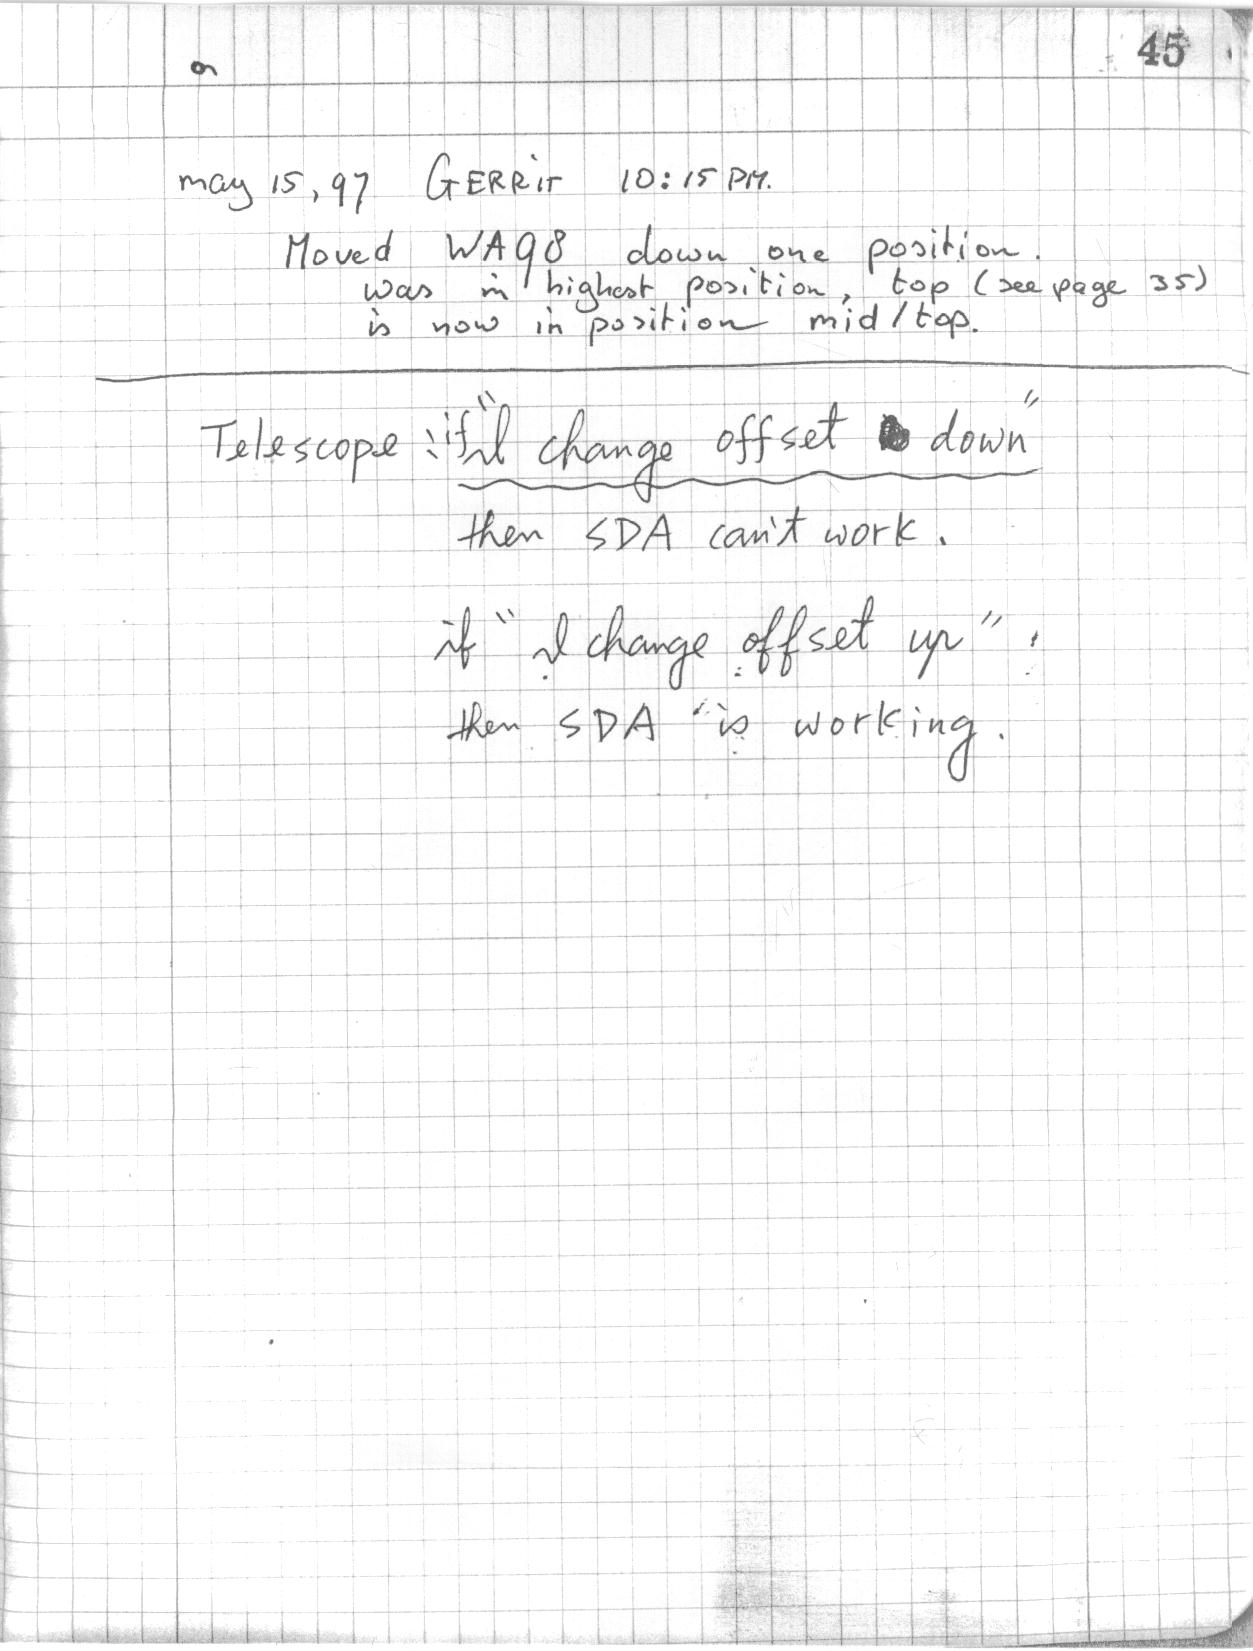 45
may 15, 97 GERRIT 10:15 PM.
Moved WA98 down one position.
was in highest position, top (see page 35)
is now in position mid/top.
Telescope : if "I change offset down"
then SDA can't work.
if "I change offset up".
then SDA is working.